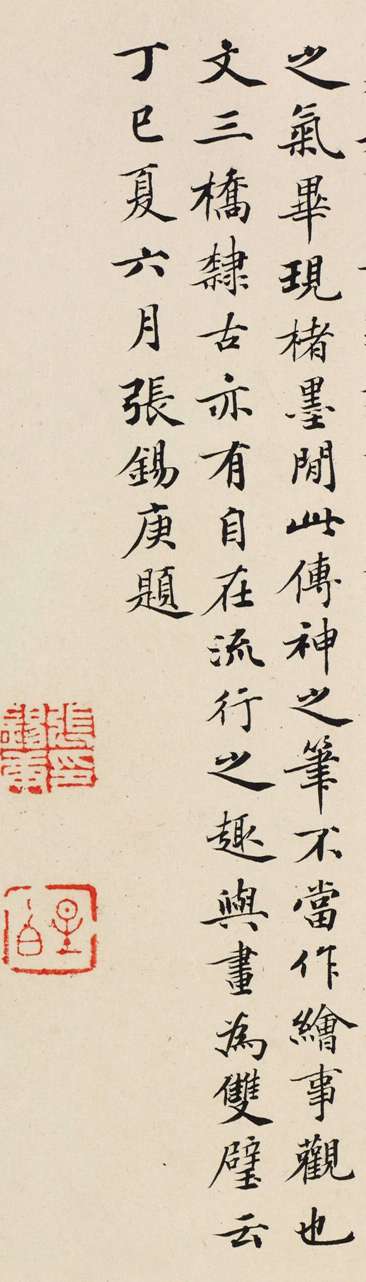 之氣畢現楮墨閒此傳神之筆不當作繪事觀也
文三橋隸古亦有自在流行之趣與畫為雙璧云
丁巳夏六月張錫庚題
張錫庚印
星白